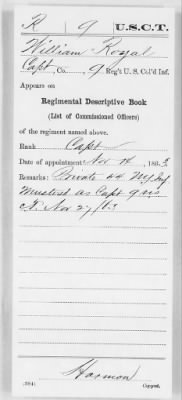 R 9 U.S.C.T.
William Royal
Capt, Co. , 9 Reg't U. S. Col'd Inf.
Appears on
Regimental Descriptive Book
(List of Commissioned Officers)
of the regiment named above.
Rank Capt
Date of appointment Nov 14, 1863
Remarks: Private 44 NY Inf
Mustered as Capt 9 US
Nov 27/63
Harmon
(384) Copyist.